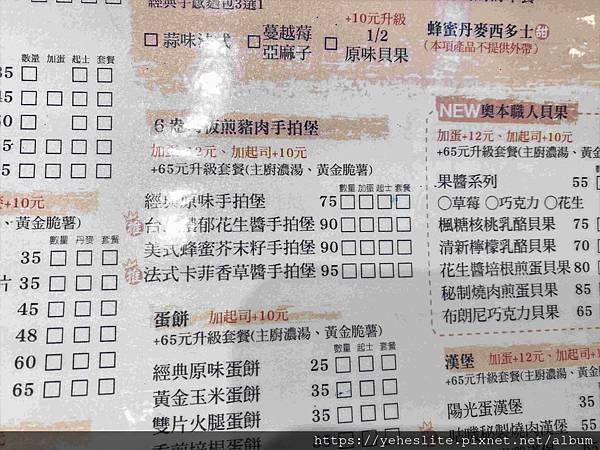 蒜味法式
蔓越莓
亞麻子
+10元升級
1/2
原味貝果
蜂蜜丹麥西多士 甜
(本項產品不提供外帶)
數量 加蛋 起士 套餐
35
45
50
數量 丹麥 套餐
35
35
45
48
60
65
煎豬肉手拍堡
加蛋+12元、加起司+10元
+65元升級套餐(主廚濃湯、黃金脆薯)
數量 加蛋 起士 套餐
經典原味手拍堡 75
郁花生醬手拍堡 90
美式蜂蜜芥末籽手拍堡 90
推 法式卡菲香草醬手拍堡 95
蛋餅 加起司+10元
+65元升級套餐(主廚濃湯、黃金脆薯)
數量 起士 套餐
經典原味蛋餅 25
黃金玉米蛋餅 35
雙片火腿蛋餅 35
NEW 奧本職人貝果
加蛋+12元、加起司+10元
+65元升級套餐(主廚濃湯、黃
果醬系列 55
○草莓 ○巧克力 ○花生
楓糖核桃乳酪貝果 75
清新檸檬乳酪貝果 70
花生醬培根煎蛋貝果 80
秘製燒肉煎蛋貝果 85
布朗尼巧克力貝果 65
漢堡 加蛋+12元、加起司+1
+65元升級套餐(主廚濃湯、黃金
陽光蛋漢堡
秘製燒肉漢堡 55
https://yeheslite.pixnet.net/album